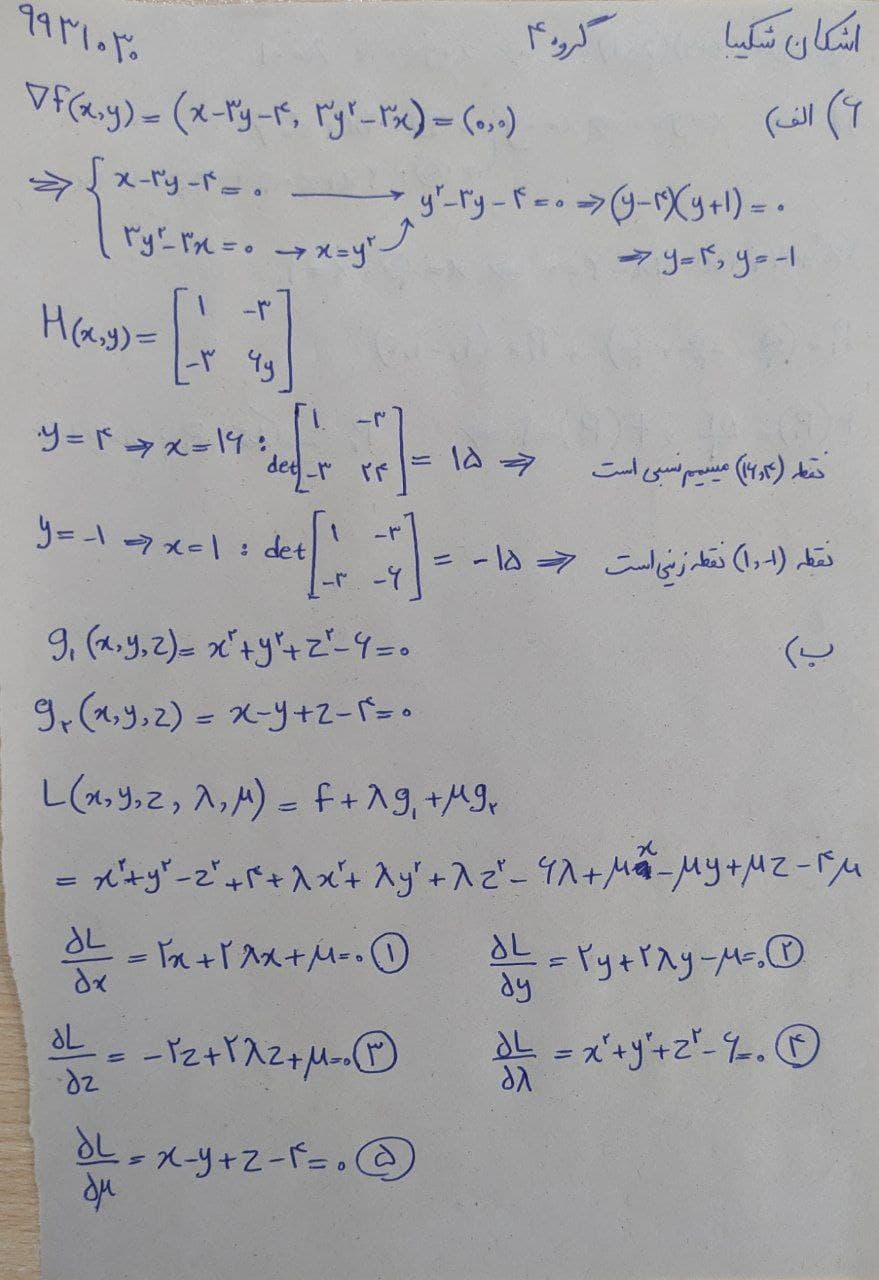 اشکان شکیبا گروه ۴ ۹۹۳۱۰۳۰
۶) الف) ∇f(x,y) = (x-۳y-۴, ۳y²-۳x) = (۰,۰)
⇒ { x-۳y-۴=۰ → y²-۳y-۴=۰ ⇒ (y-۴)(y+۱)=۰
۳y²-۳x=۰ → x=y² ⇒ y=۴, y=-۱
H(x,y) = [۱ -۳
-۳ ۶y]
y=۴ ⇒ x=۱۶ : det [۱ -۳
-۳ ۲۴] = ۱۵ ⇒ نقطه (۱۶,۴) مینیمم نسبی است
y=-۱ ⇒ x=۱ : det [۱ -۳
-۳ -۶] = -۱۵ ⇒ نقطه (۱,-۱) نقطه زینی است
ب) g₁(x,y,z) = x²+y²+z²-۶=۰
g₂(x,y,z) = x-y+z-۴=۰
L(x,y,z,λ,μ) = f+λg₁+μg₂
= x²+y²-z²+۴+λx²+λy²+λz²-۶λ+μx-μy+μz-۴μ
∂L/∂x = ۲x+۲λx+μ=۰ ① ∂L/∂y = ۲y+۲λy-μ=۰ ②
∂L/∂z = -۲z+۲λz+μ=۰ ③ ∂L/∂λ = x²+y²+z²-۶=۰ ④
∂L/∂μ = x-y+z-۴=۰ ⑤